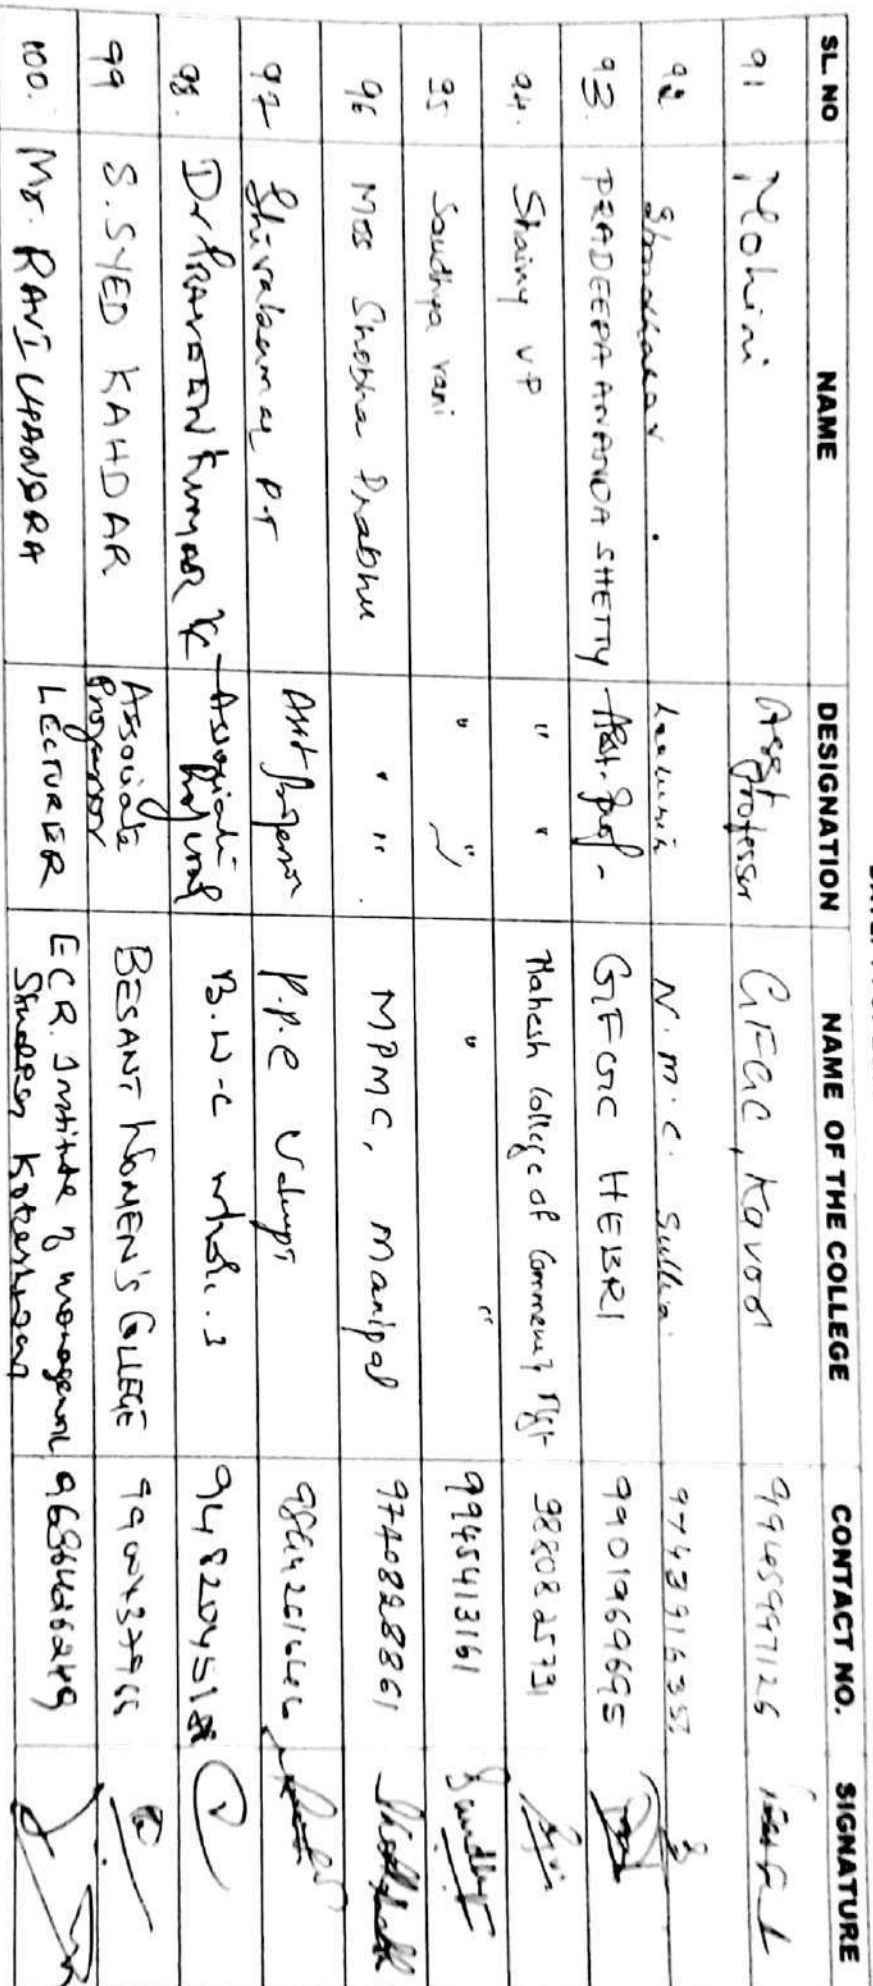 SL. NO NAME DESIGNATION NAME OF THE COLLEGE CONTACT NO. SIGNATURE
91 Mohini Asst Professer GFGC, Kavoor 9945997126
92 N.M.C. Sullia
93. PRADEEPA ANANDA SHETTY Asst. Prof. GFGC HEBRI 9901969695
94. Shainy V P " " Mahesh College of Commerce & Mgt 9880825731
95 Sandhya rani " " " " 9945413161
96 Mrs Shobha Prabhu " " . MPMC, Manipal 9740828861
97 Shivakumar P T Asst Professor P.P.C Udupi
98. Dr PRAVEEN Kumar K Associate Professor B.W.C
99 S. SYED KAHDAR Associate Professor BESANT WOMEN'S COLLEGE
100. Mr. RAVICHANDRA LECTURER ECR. Institute of management Studies, Koteshwar